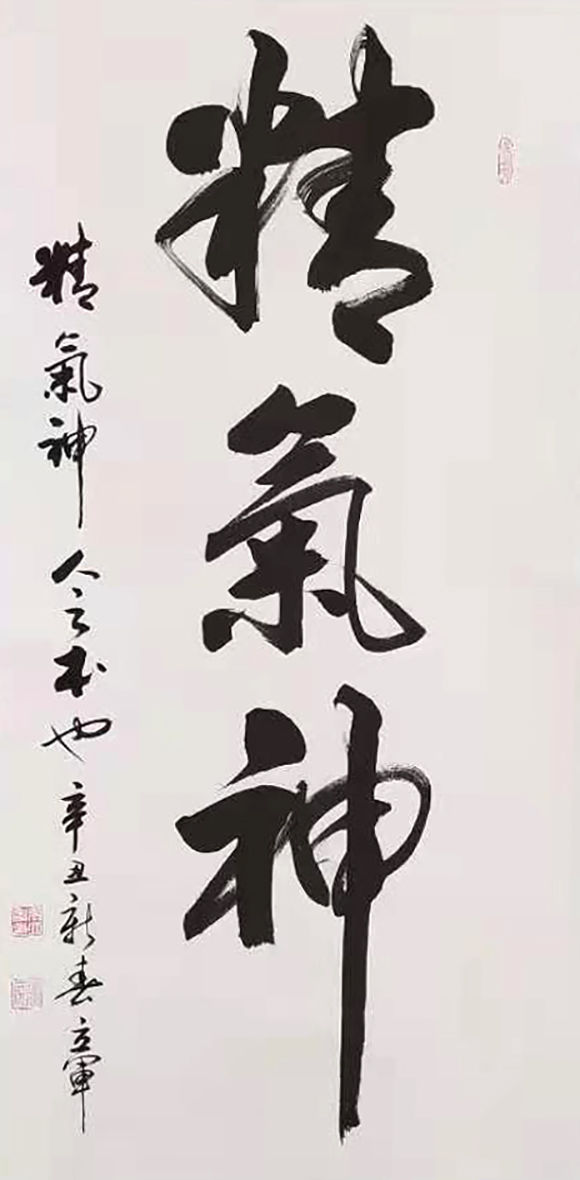 精氣神
精氣神人之本也辛丑新春立軍